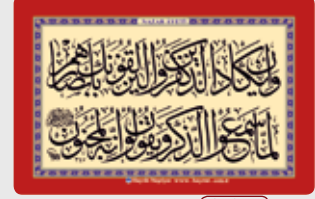 NAZAR AYETİ
وان يكاد الذين كفروا ليزلقونك بابصارهم
لما سمعوا الذكر ويقولون انه لمجنون